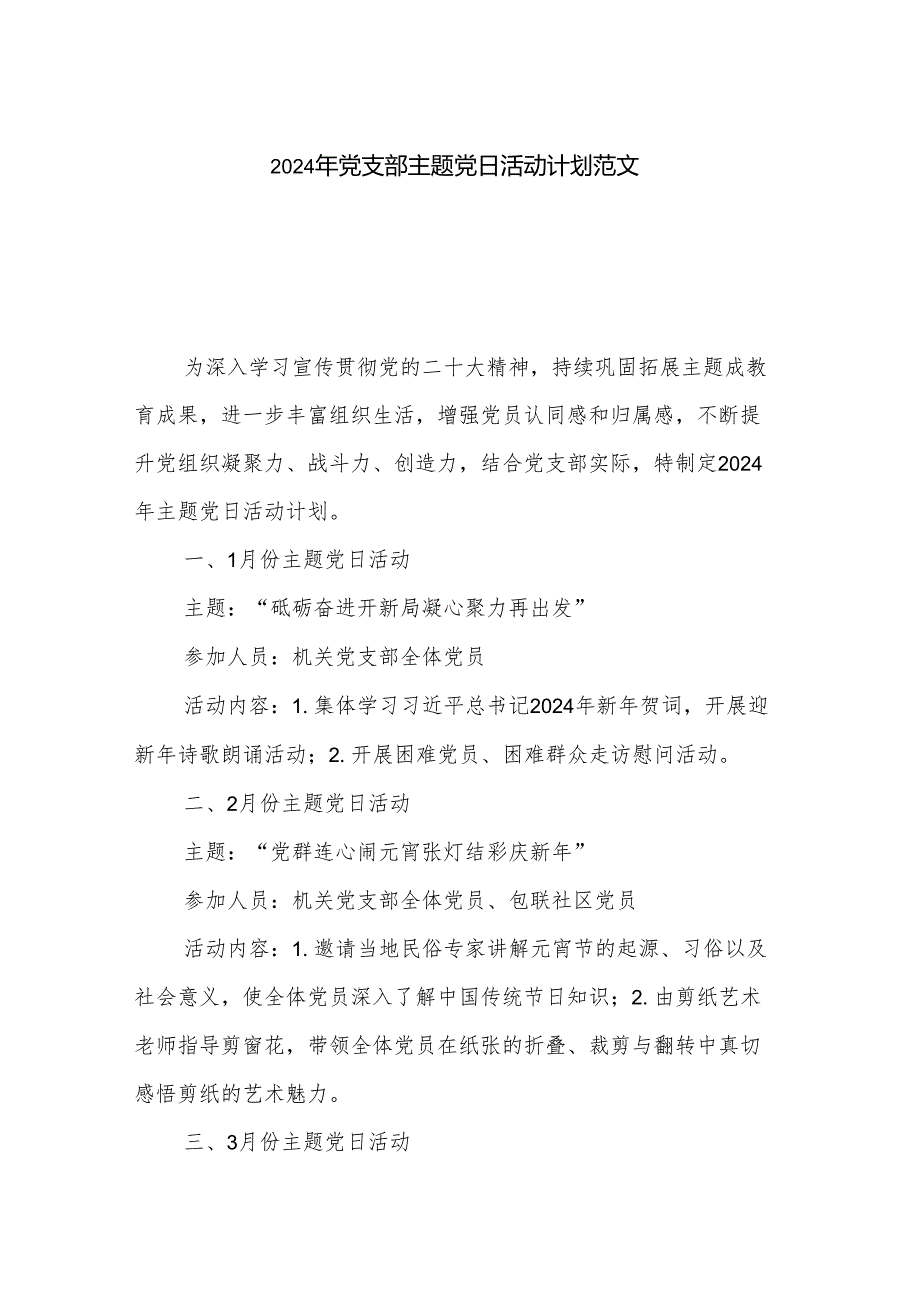 2024年党支部主题党日活动计划范文
为深入学习宣传贯彻党的二十大精神，持续巩固拓展主题成教
育成果，进一步丰富组织生活，增强党员认同感和归属感，不断提
升党组织凝聚力、战斗力、创造力，结合党支部实际，特制定2024
年主题党日活动计划。
一、1月份主题党日活动
主题：“砥砺奋进开新局凝心聚力再出发”
参加人员：机关党支部全体党员
活动内容：1. 集体学习习近平总书记2024年新年贺词，开展迎
新年诗歌朗诵活动；2. 开展困难党员、困难群众走访慰问活动。
二、2月份主题党日活动
主题：“党群连心闹元宵张灯结彩庆新年”
参加人员：机关党支部全体党员、包联社区党员
活动内容：1. 邀请当地民俗专家讲解元宵节的起源、习俗以及
社会意义，使全体党员深入了解中国传统节日知识；2. 由剪纸艺术
老师指导剪窗花，带领全体党员在纸张的折叠、裁剪与翻转中真切
感悟剪纸的艺术魅力。
三、3月份主题党日活动